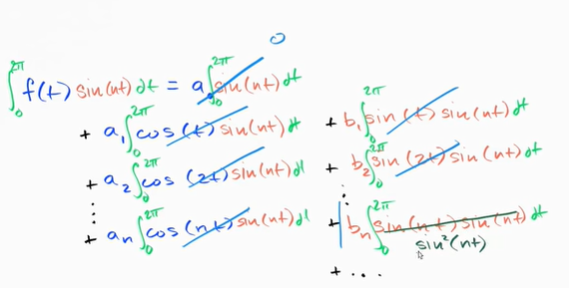 0
∫₀^2π f(t) sin(nt) dt = a₀∫₀^2π sin(nt) dt
+ a₁∫₀^2π cos(t) sin(nt) dt + b₁∫₀^2π sin(t) sin(nt) dt
+ a₂∫₀^2π cos(2t) sin(nt) dt + b₂∫₀^2π sin(2t) sin(nt) dt
⋮ ⋮
+ aₙ∫₀^2π cos(nt) sin(nt) dt + bₙ∫₀^2π sin(nt) sin(nt) dt
sin²(nt)
+ ...